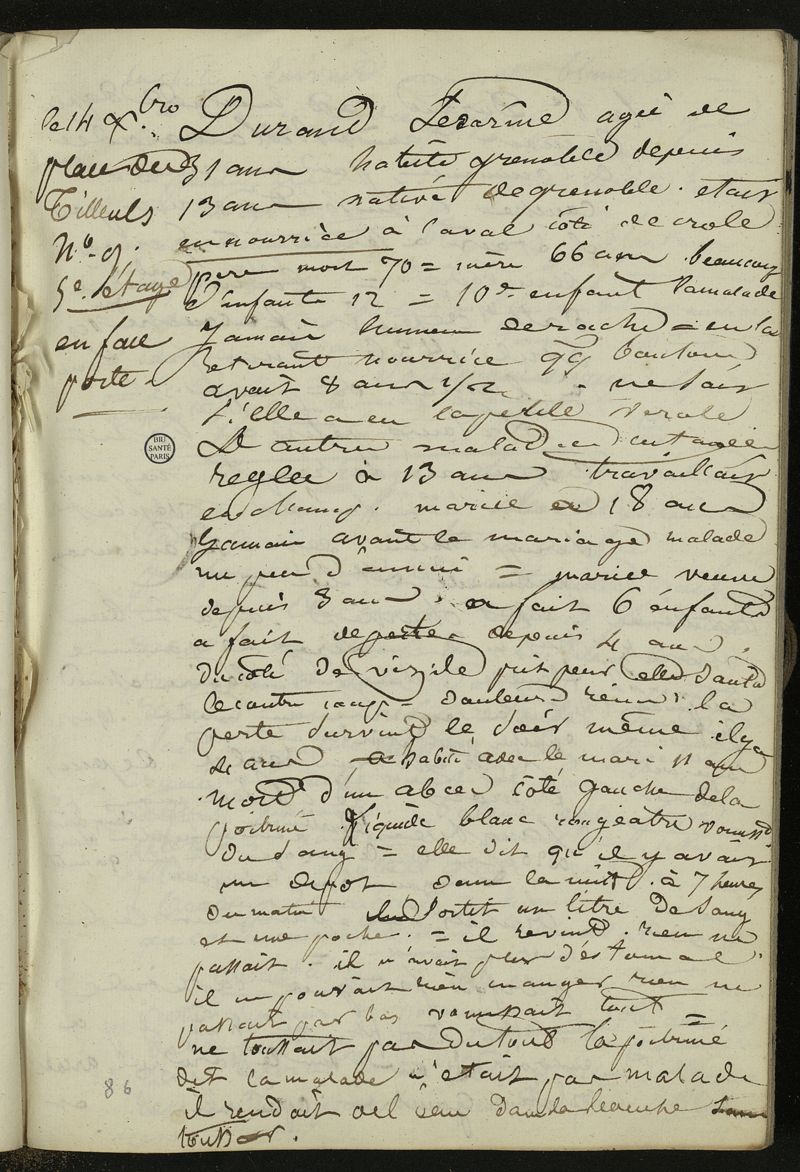 le 14 Xbro
place des
Tilleuls
No. 9.
5e. étage
en face
porte.
Durand agée de
31 ans habite grenoble depuis
13 ans native de grenoble. etait
en nourrice à laval côté de crole
pere mort 70 = mère 66 ans beaucoup
d'enfants 12 = 10e enfant la malade
jamais humeur de rache = en la
retirant nourrice qq boutons
avait 8 ans 1/2 - ne sait
s'elle a eu la petite verole
BIU
SANTÉ
PARIS
D'autres malad
reglee à 13 ans travaillait
en champ. mariée a 18 ans
jamais avant le mariage malade
un peu d'ennui = mariee veuve
depuis 8 ans. a fait 6 enfants
a fait de perte depuis 4 ans.
du côté de vizile prit peur elle sauta
le contre coup = douleurs reins la
perte survint le soir même il y a
4 ans, habité avec le mari 11 ans
mort d'un abces côté gauche de la
poitrine liquide blanc rougeatre
du sang = elle dit qu'il y avait
un depot dans la nuit. à 7 heures
du matin sortit un litre de sang
et une poche. = il revint. rien ne
passait. il n'avait plus d'estomac.
il ne pouvait rien manger rien ne
passait par bas vomissait tout =
ne toussait pas du tout la poitrine
dit la malade n'etait pas malade
il rendait cel eau dans la bouche sans
tousser.
86